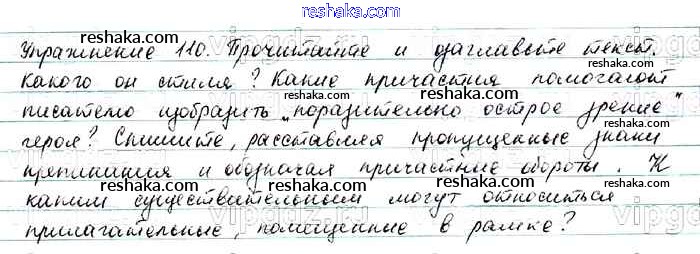 reshaka.com
Упражнение 110. Прочитайте и озаглавьте текст.
Какого он стиля? Какие причастия помогают
писателю изобразить "поразительно острое зрение"
героя? Спишите, расставляя пропущенные знаки
препинания и обозначая причастные обороты. К
каким существительным могут относиться
прилагательные, помещенные в рамке?